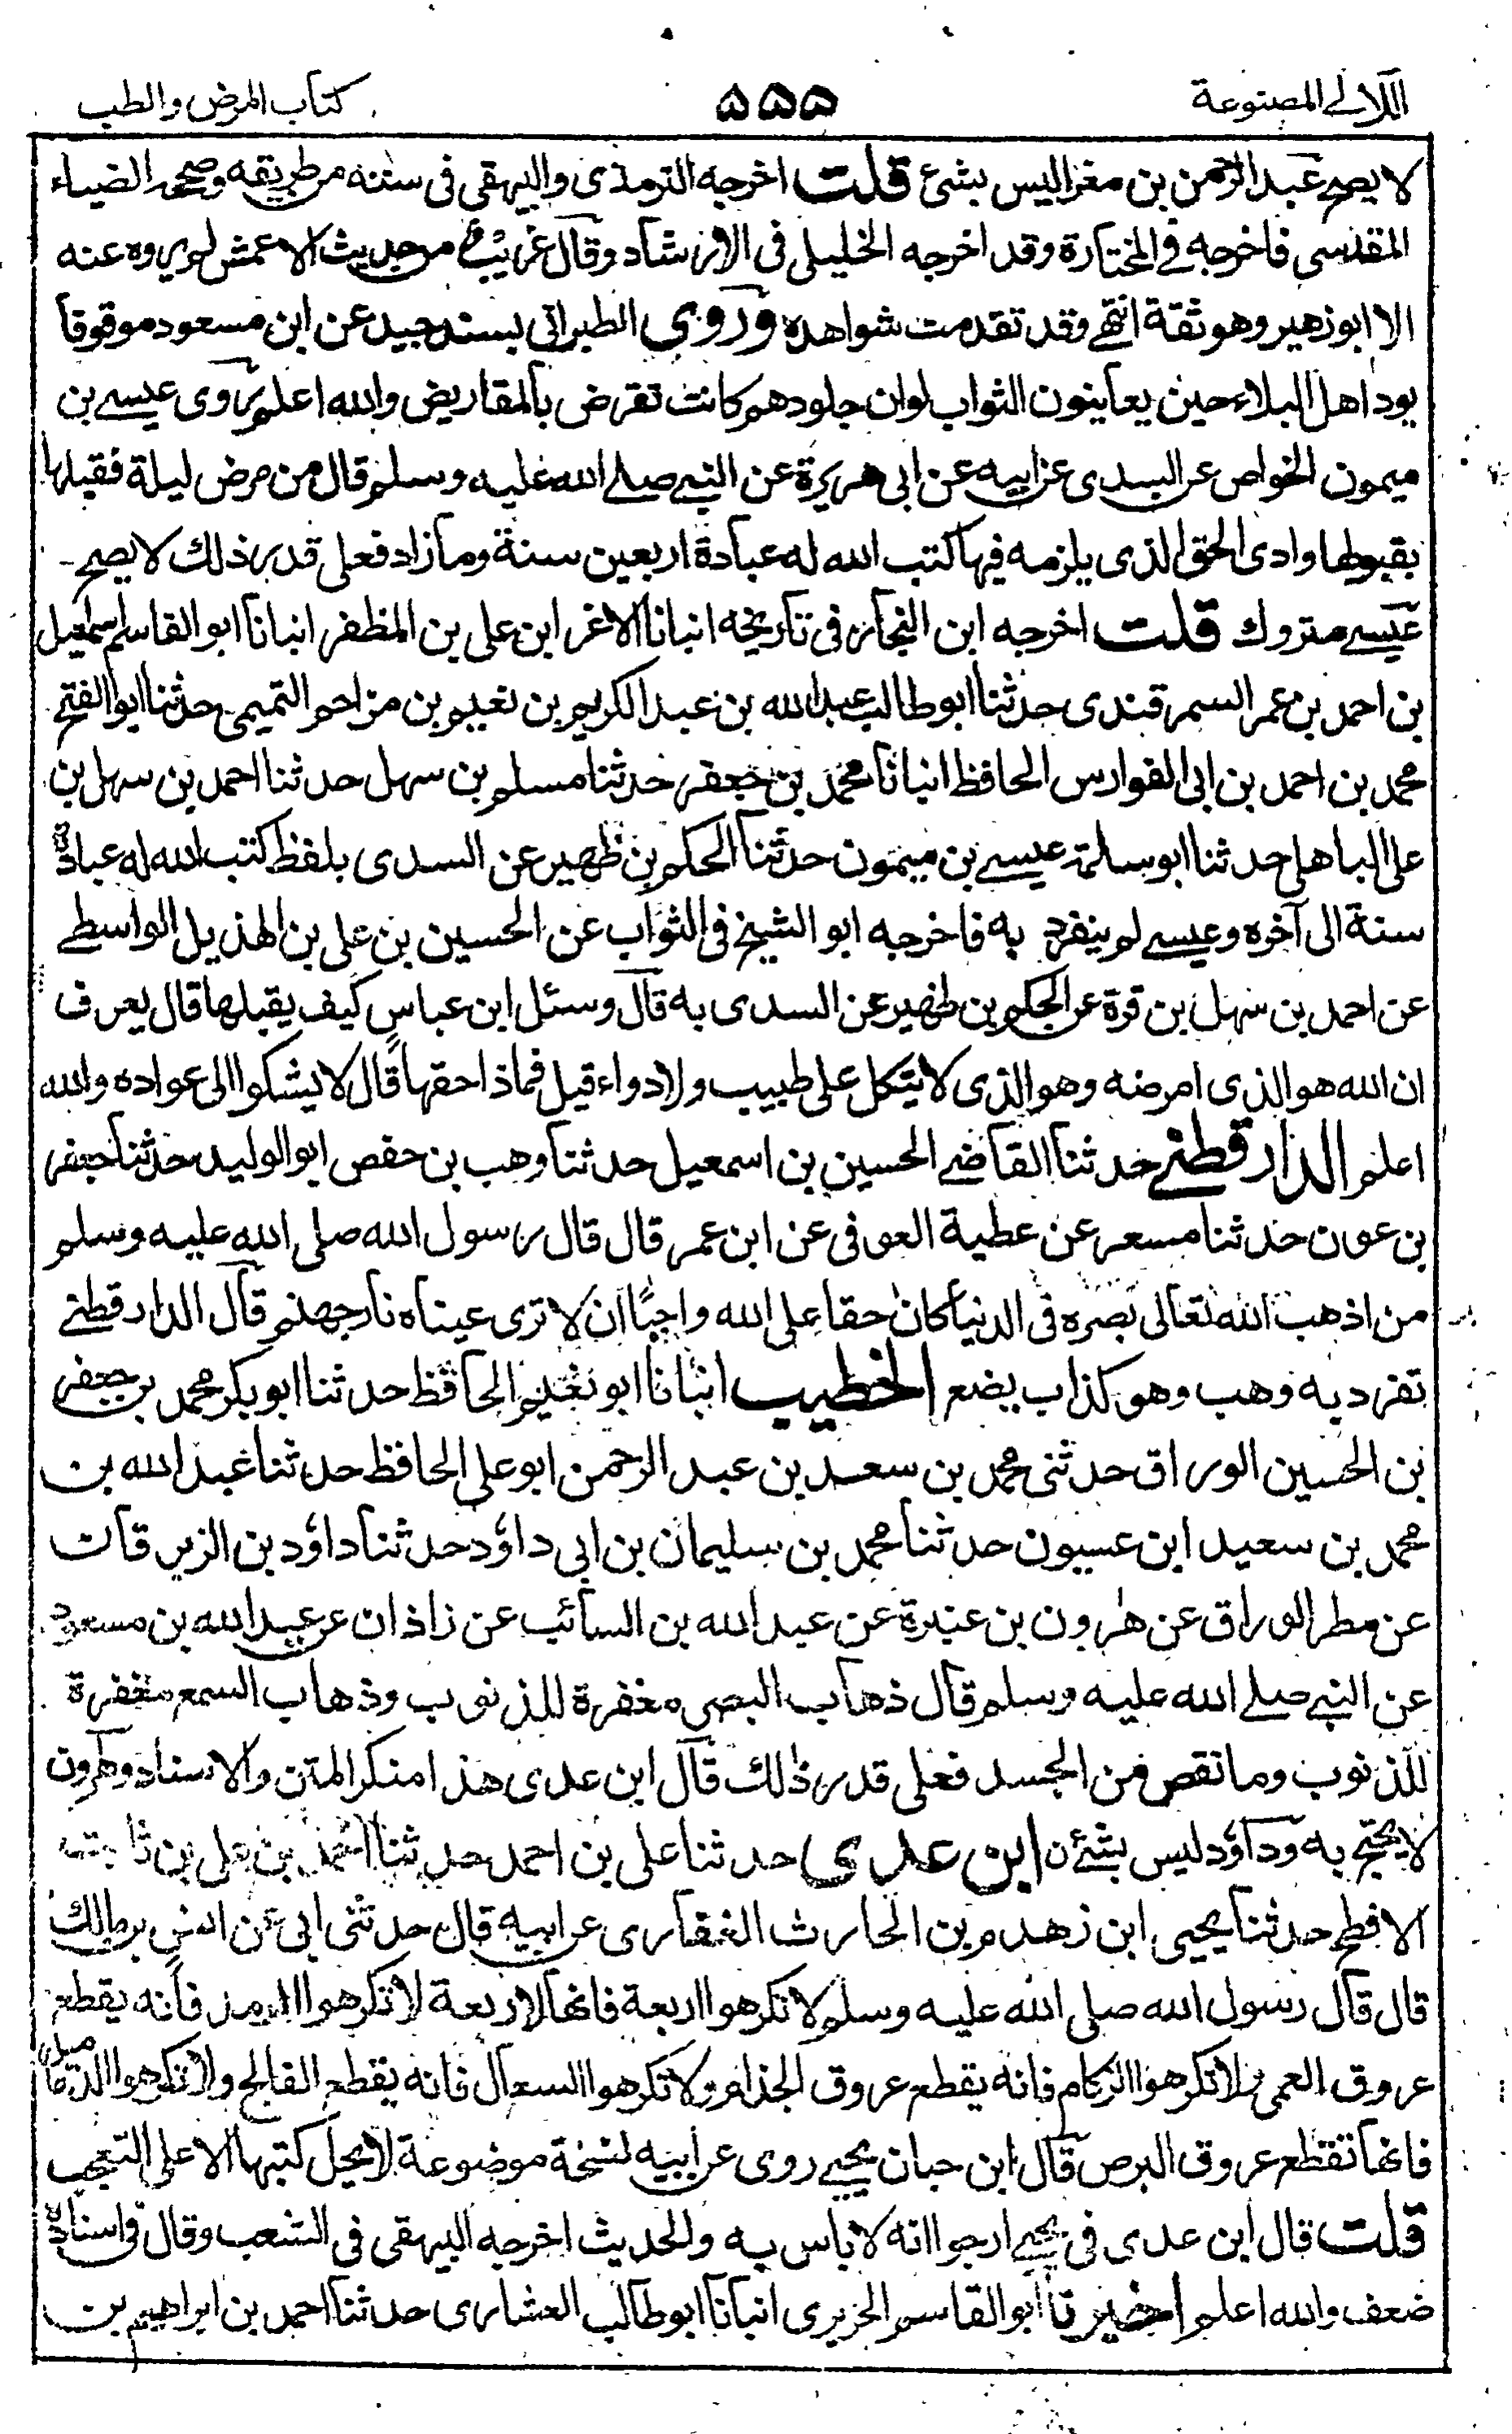 اللآلے المصنوعة ۵۵۵ كتاب المرض والطب
لا يصح عبد الرحمن بن مغرا ليس بشئ قلت اخرجه الترمذى والبيهقى فى سننه من طريقه وصححه الضياء
المقدسى فاخرجه فے المختارة وقد اخرجه الخليلى فى الارشاد وقال غريب من حديث الاعمش لم يروه عنه
الا ابو زهير وهو ثقة انتهے وقد تقدمت شواهده وروى الطبرانى بسند جيد عن ابن مسعود موقوفا
يود اهل البلاء حين يعاينون الثواب لوان جلودهم كانت تقرض بالمقاريض والله اعلم روى عيسے بن
ميمون الخواص عن السدى عن ابيه عن ابى هريرة عن النبے صلے الله عليه وسلم قال من مرض ليلة فقبلها
بقبولها وادى الحق الذى يلزمه فيها كتب الله له عبادة اربعين سنة وما زاد فعلى قدر ذلك لا يصح
عيسے متروك قلت اخرجه ابن النجار فى تاريخه انبانا الاغر ابن على بن المظفر انبانا ابو القاسم اسمعيل
بن احمد بن عمر السمرقندى حدثنا ابو طالب عبد الله بن عبد الكريم بن نعيم بن مزاحم التميمى حدثنا ابو الفتح
محمد بن احمد بن ابى الفوارس الحافظ انبانا محمد بن جعفر حدثنا مسلم بن سهل حدثنا احمد بن سهل بن
على الباهلى حدثنا ابو سلمة عيسے بن ميمون حدثنا الحكم بن ظهير عن السدى بلفظ كتب الله له عبادة
سنة الى آخره وعيسے لم ينفرد به فاخرجه ابو الشيخ فى الثواب عن الحسين بن على بن الهذيل الواسطے
عن احمد بن سهل بن قرة عن الحكم بن ظهير عن السدى به قال وسئل ابن عباس كيف يقبلها قال يعرف
ان الله هو الذى امرضه وهو الذى لا يتكل على طبيب ولا دواء قيل فماذا حقها قال لا يشكوا الى عواده والله
اعلم الدارقطنے حدثنا القاضے الحسين بن اسمعيل حدثنا وهب بن حفص ابو الوليد حدثنا جعفر
بن عون حدثنا مسعر عن عطية العوفى عن ابن عمر قال قال رسول الله صلى الله عليه وسلم
من اذهب الله تعالى بصره فى الدنيا كان حقا على الله واجبًا ان لا ترى عيناه نار جهنم قال الدارقطنے
تفرد به وهب وهو كذاب يضع الخطيب انبانا ابو نعيم الحافظ حدثنا ابو بكر محمد بن جعفر
بن الحسين الوراق حدثنى محمد بن سعد بن عبد الرحمن ابو على الحافظ حدثنا عبد الله بن
محمد بن سعيد ابن عسيون حدثنا محمد بن سليمان بن ابى داؤد حدثنا داؤد بن الزبرقان
عن مطر الوراق عن هٰرون بن عنترة عن عبد الله بن السائب عن زاذان عن عبد الله بن مسعود
عن النبے صلے الله عليه وسلم قال ذهاب البصر مغفرة للذنوب وذهاب السمع مغفرة
للذنوب وما نقص من الجسد فعلى قدر ذلك قال ابن عدى هذا منكر المتن والاسناد وهٰرون
لا يحتج به وداؤد ليس بشئ ابن عدى حدثنا على بن احمد حدثنا احمد بن على بن
الافطح حدثنا يحيى ابن زهدم بن الحارث الغفارى عن ابيه قال حدثنى ابى عن انس بن مالك
قال قال رسول الله صلى الله عليه وسلم لا تكرهوا اربعة فانها لاربعة لا تكرهوا الرمد فانه يقطع
عروق العمى ولا تكرهوا الزكام فانه يقطع عروق الجذام ولا تكرهوا السعال فانه يقطع الفالج ولا تكرهوا الدماميل
فانها تقطع عروق البرص قال ابن حبان يحيے روى عن ابيه نسخة موضوعة لا يحل كتبها الا على التعجب
قلت قال ابن عدى فى يحيے ارجوا انه لا باس به والحديث اخرجه البيهقى فى الشعب وقال فى اسناده
ضعف والله اعلم اخبرنا ابو القاسم الحريرى انبانا ابو طالب العشارى حدثنا احمد بن ابراهيم بن